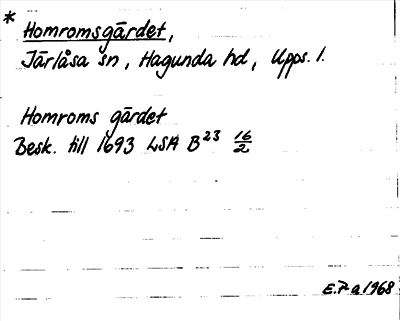 * Homromsgärdet,
Järlåsa sn, Hagunda hd, Upps. l.
Homroms gärdet
Besk. till 1693 LSA B23 16/2
E.P-a 1968